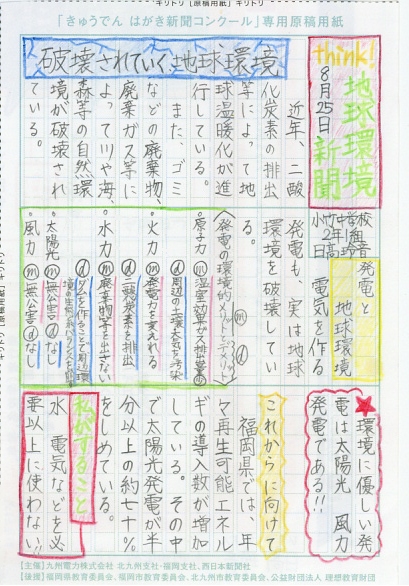 キリトリ【原稿用紙】キリトリ
「きゅうでん はがき新聞コンクール」専用原稿用紙
think!
地球環境
新聞
8月25日
破壊されていく地球環境
近年、二酸
化炭素の排出
等によって地
球温暖化が進
行している。
また、ゴミ
などの廃棄物、
廃棄ガス等に
よって川や海、
森等の自然環
境が破壊され
ている。
発電と
地球環境
電気を作る
発電も、実は地球
環境を破壊してい
る。
〈発電の環境的メリット・デメリット〉
・原子力
m 温室効果ガス排出量
d 周辺の土壌大気を汚染
・火力
m 発電量を変えれる
d 二酸化炭素を排出
・水力
m 廃棄物等を出さない
d ダムを作ることで周辺環
・太陽光
m 無公害 d なし
・風力
m 無公害 d なし
★環境に優しい発
電は太陽光 風力
発電である!!
これからに向けて
福岡県では、年
々再生可能エネル
ギの導入数が増加
している。その中
で太陽光発電が半
分以上の約七十%
をしめている。
私がすること
水 電気などを必
要以上に使わない!!
【主催】九州電力株式会社 北九州支社・福岡支社、西日本新聞社
【後援】福岡県教育委員会、福岡市教育委員会、北九州市教育委員会、公益財団法人 理想教育財団